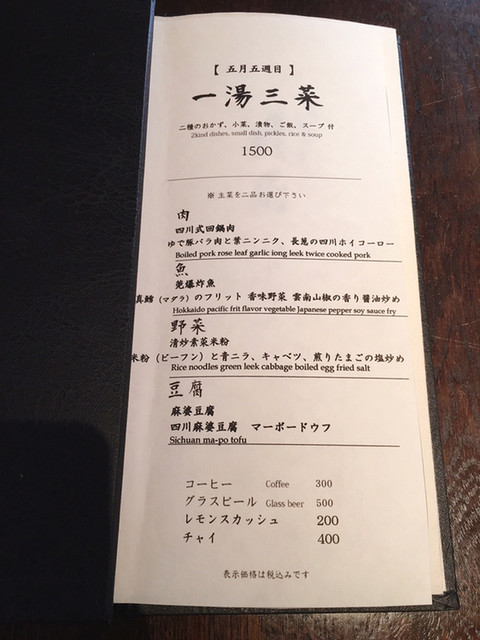 【 五月五週目 】
一湯三菜
二種のおかず、小菜、漬物、ご飯、スープ 付
2kind dishes, small dish, pickles, rice & soup
1500
※ 主菜を二品お選び下さい
肉
四川式回鍋肉
ゆで豚バラ肉と葉ニンニク、長葱の四川ホイコーロー
Boiled pork rose leaf garlic iong leek twice cooked pork
魚
蔸爆炸魚
真鱈（マダラ）のフリット 香味野菜 雲南山椒の香り醤油炒め
Hokkaido pacific frit flavor vegetable Japanese pepper soy sauce fry
野菜
清炒素菜米粉
米粉（ビーフン）と青ニラ、キャベツ、煎りたまごの塩炒め
Rice noodles green leek cabbage boiled egg fried salt
豆腐
麻婆豆腐
四川麻婆豆腐 マーボードウフ
Sichuan ma-po tofu
コーヒー Coffee 300
グラスビール Glass beer 500
レモンスカッシュ 200
チャイ 400
表示価格は税込みです